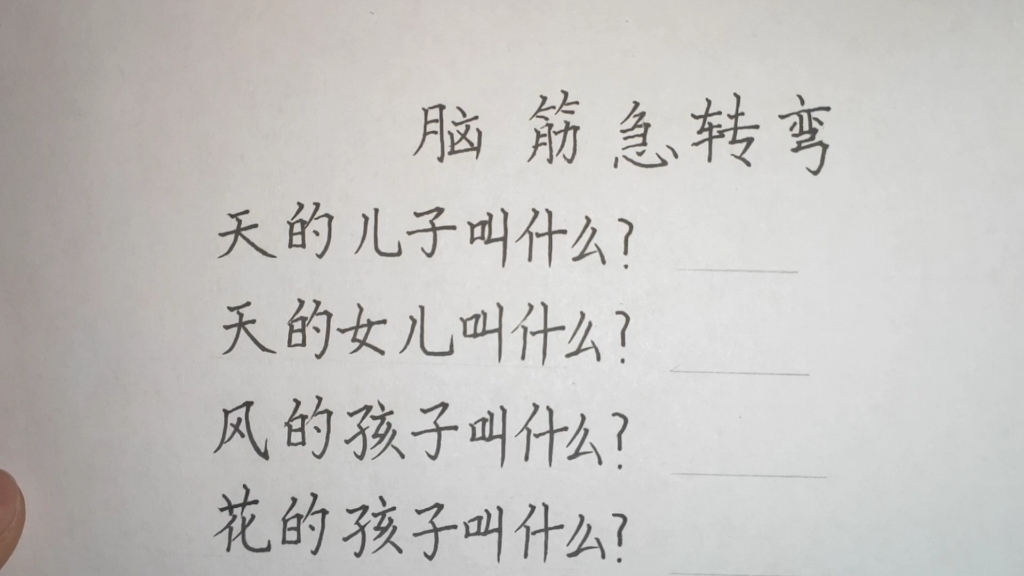 脑筋急转弯
天的儿子叫什么?
天的女儿叫什么?
风的孩子叫什么?
花的孩子叫什么?